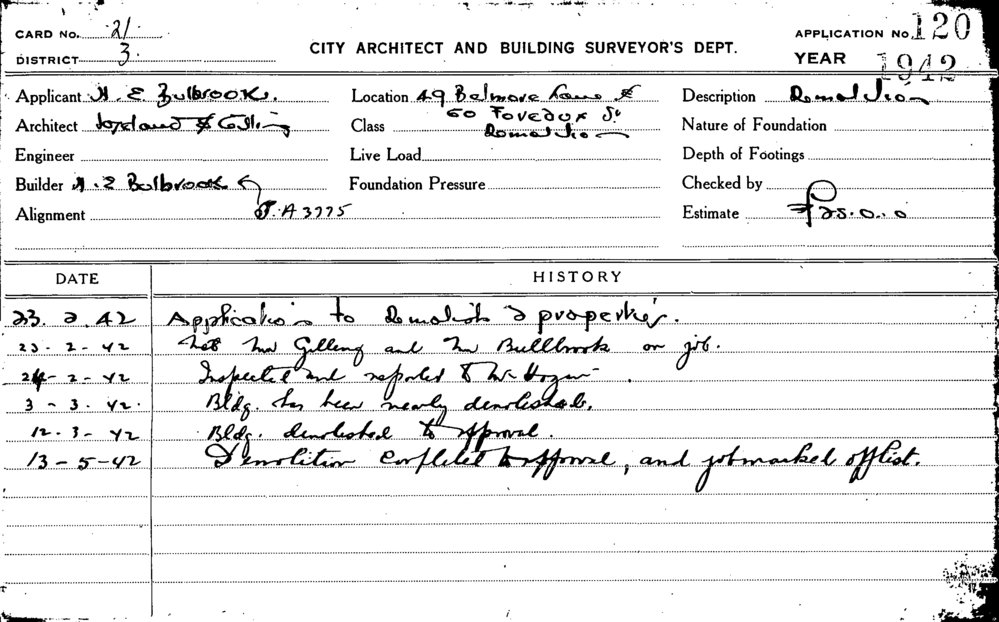 CARD No. 21
DISTRICT 3
CITY ARCHITECT AND BUILDING SURVEYOR'S DEPT.
APPLICATION No. 120
YEAR 1942
Applicant H. E. Bulbrook. Location 49 Belmore Lane & Description Demolition
60 Foveaux St
Architect Class Demolition Nature of Foundation
Engineer Live Load Depth of Footings
Builder H. E. Bulbrook Foundation Pressure Checked by
Alignment T.A 3775 Estimate £25.0.0
DATE HISTORY
23. 2. 42 Application to Demolish 2 properties.
23-2-42 Met Mr and Mr Bullbrook on job.
24-2-42 Inspected and reported to Mr Hogan.
3-3-42. Bldg. has been nearly demolished.
12-3-42 Bldg. demolished to approval.
13-5-42 Demolition completed to approval, and job marked off list.